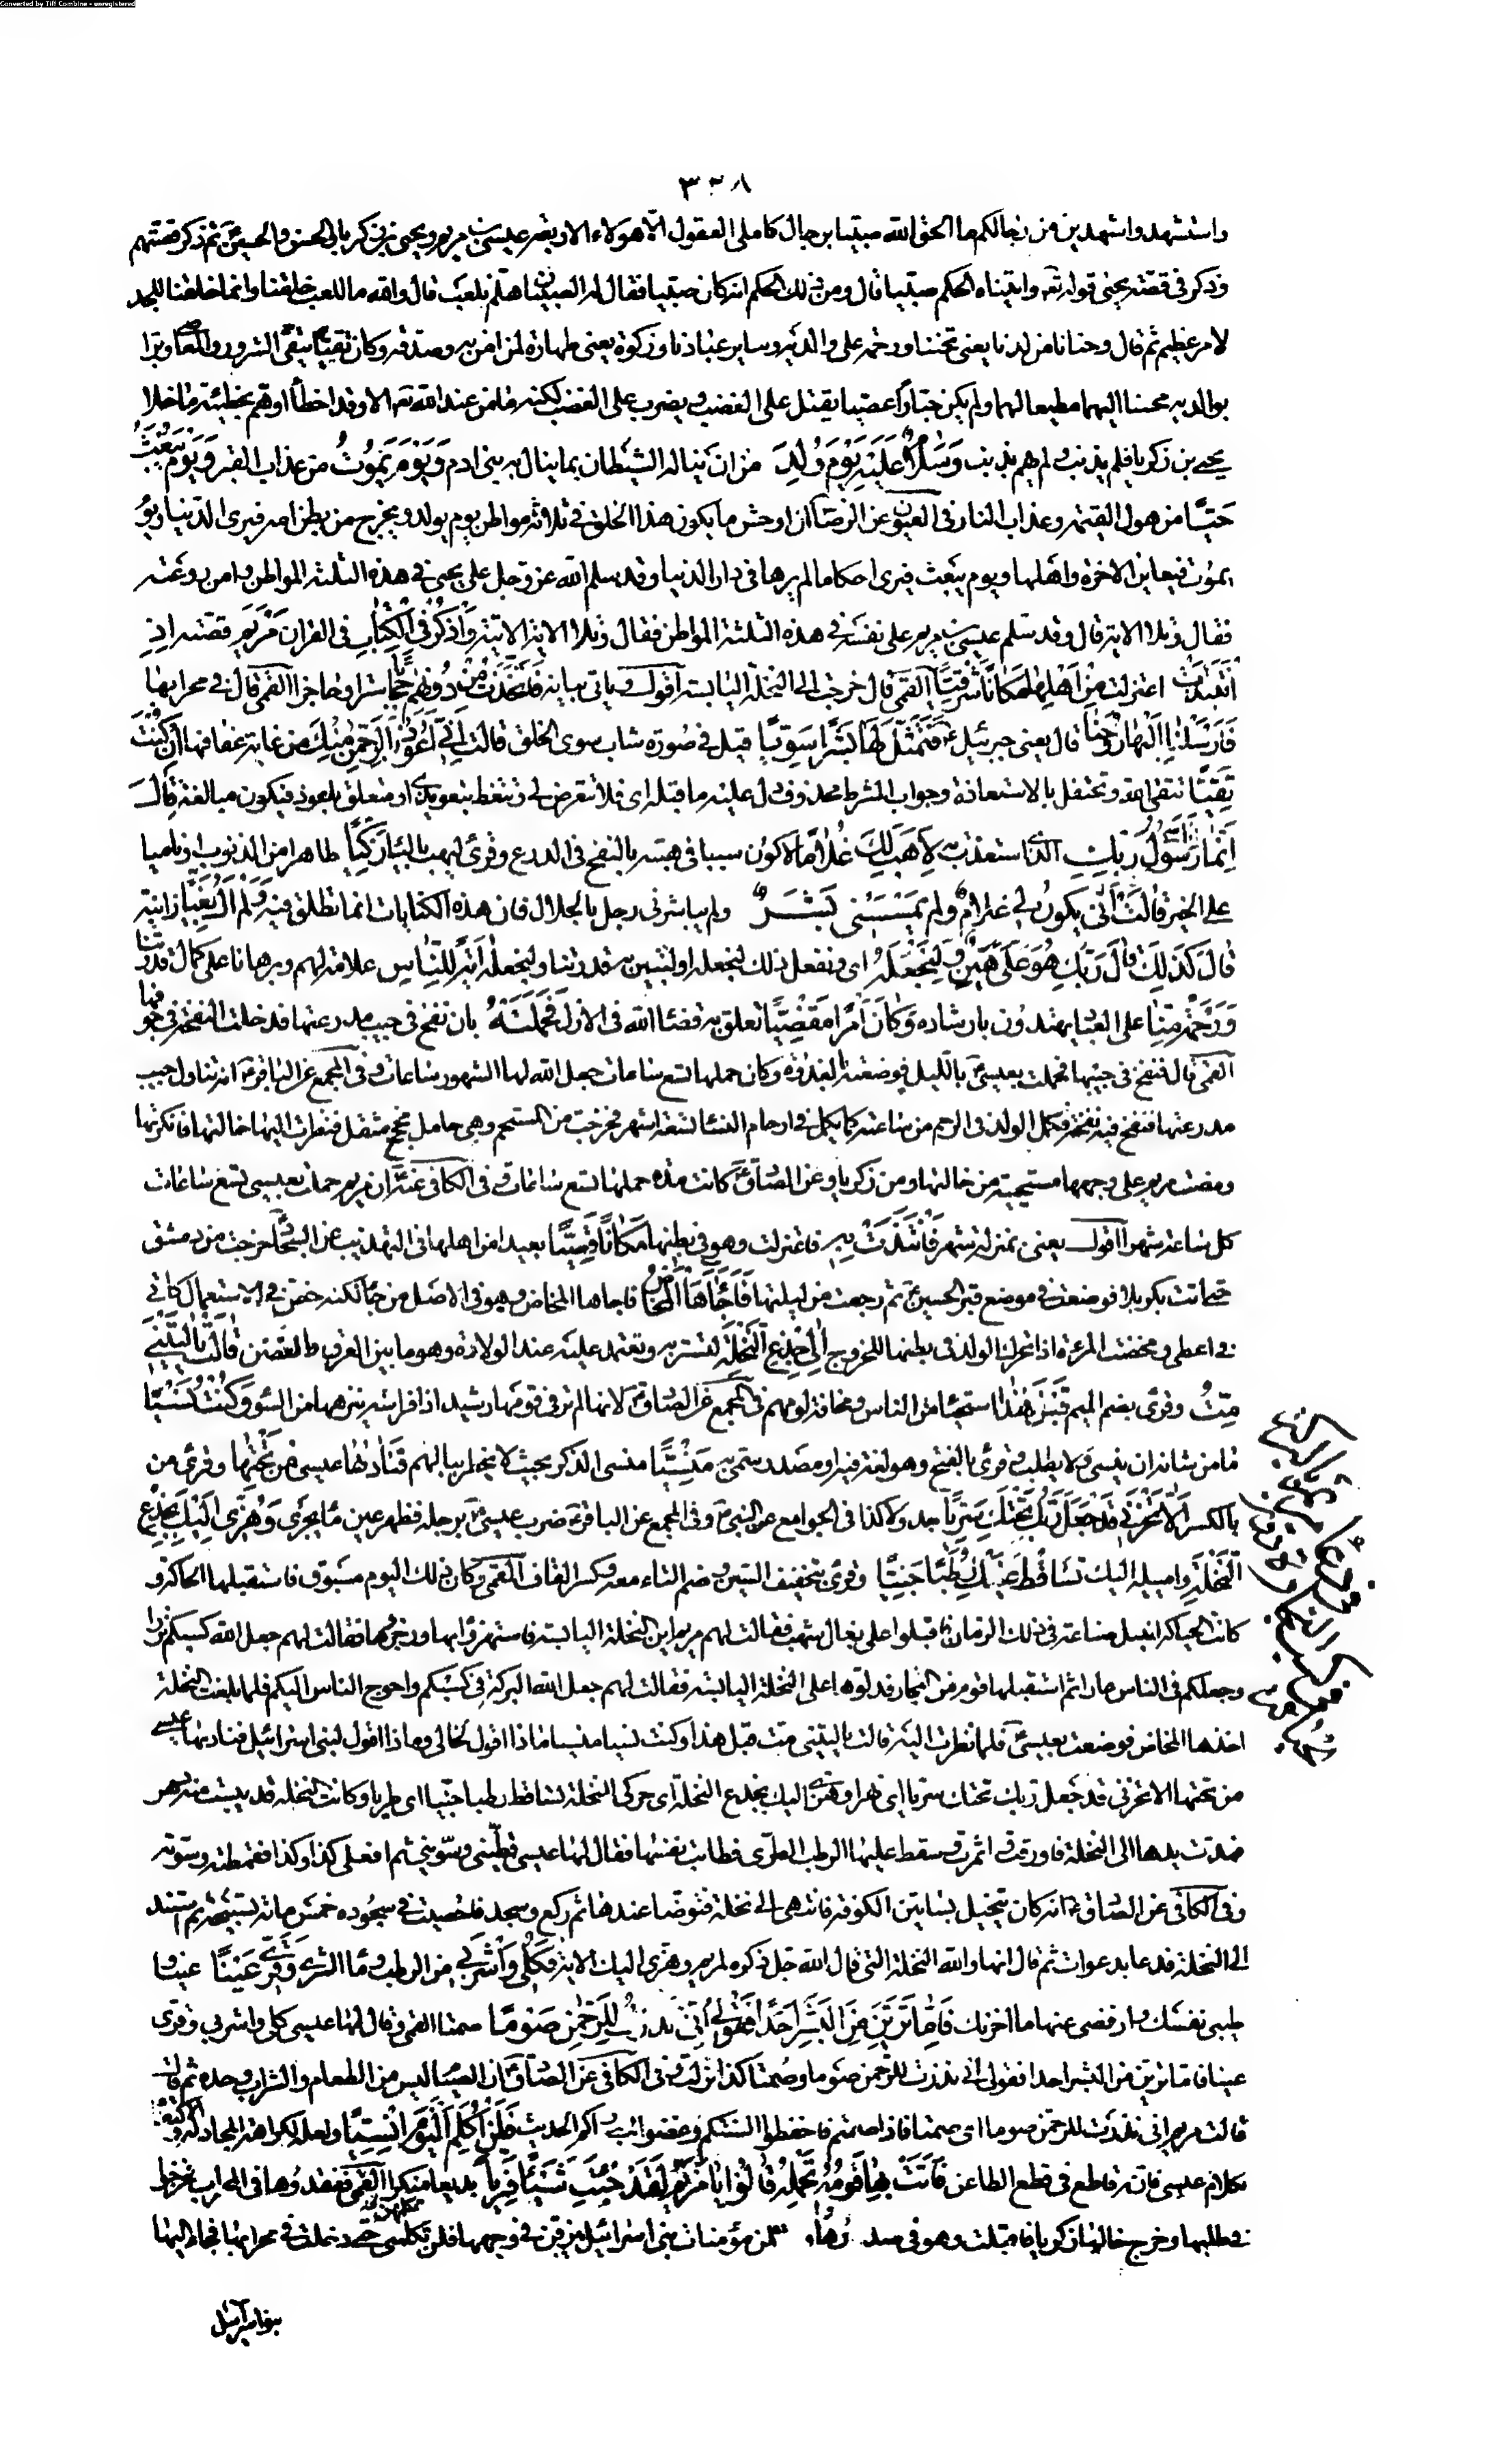 Converted by Tiff Combine - unregistered
٣٢٨
واستشهد واشهدين من رجالكم ما الحق الله صبيانا برجال كاملى العقول الا هؤلاء الاربعة عيسى بن مريم ويحيى بن زكريا والحسن والحسين ثم ذكر قصتهم
وذكر فى قصة يحيى قوله تعه واتيناه الحكم صبيا قال ومن ذلك الحكم انه كان صبيا فقال له الصبيان هلم نلعب قال والله ما للعب خلقنا وانما خلقنا للجد
لامر عظيم ثم قال وحنانا من لدنا يعنى تحننا ورحمة على والديه وساير عبادنا وزكوة يعنى طهارة لمن امن به وصدقه وكان تقيا يتقى الشرور والمعاصى وبرا
بوالديه محسنا اليهما مطيعا لهما ولم يكن جبارا عصيا يقتل على الغضب ويضرب على الغضب لكنه ما من عبد الله تعه الا وقد اخطأ او هم بخطيئة ما خلا
يحيى بن زكريا فلم يذنب ولم يهم بذنب وَسَلامٌ عَلَيْهِ يَوْمَ وُلِدَ من ان يناله الشيطان بما ينال به بنى ادم وَيَوْمَ يَمُوتُ من عذاب القبر وَيَوْمَ يُبْعَثُ
حَيًّا من هول القيمة وعذاب النار فى العيون عن الرضا ان اوحش ما يكون هذا الخلق فى ثلاثة مواطن يوم يولد ويخرج من بطن امه فيرى الدنيا ويوم
يموت فيعاين الاخرة واهلها ويوم يبعث فيرى احكاما لم يرها فى دار الدنيا وقد سلم الله عز وجل على يحيى فى هذه الثلثة المواطن وامن روعته
فقال وتلا الاية قال وقد سلم عيسى بن مريم على نفسه فى هذه الثلثة المواطن فقال وتلا الاية الاتية وَاذْكُرْ فِى الْكِتَابِ فى القران مَرْيَمَ قصته اِذِ
انْتَبَذَتْ اعتزلت مِنْ اَهْلِهَا مَكَانًا شَرْقِيًّا القمى قال خرجت الى النخلة اليابسة اقول وياتى بيانه فَاتَّخَذَتْ مِنْ دُونِهِمْ حِجَابًا سترا وحاجزا القمى قال فى محرابها
فَاَرْسَلْنَا اِلَيْهَا رُوحَنَا قال يعنى جبرئيل فَتَمَثَّلَ لَهَا بَشَرًا سَوِيًّا قيل فى صورة شاب سوى الخلق قَالَتْ اِنِّى اَعُوذُ بِالرَّحْمنِ مِنْكَ من غاية عفافها اِنْ كُنْتَ
تَقِيًّا تتقى الله وتحتفل بالاستعاذة وجواب الشرط محذوف دل عليه ما قبله اى فلا تتعرض لى وتتعظ بتعويذى او متعلق باعوذ فيكون مبالغة قَالَ
اِنَّمَا اَنَا رَسُولُ رَبِّكِ الذى استعذت به لِاَهَبَ لَكِ غُلَامًا لاكون سببا فى هبته بالنفخ فى الدرع وقرئ ليهب بالياء زَكِيًّا طاهرا من الذنوب او ناميا
على الخير قَالَتْ اَنَّى يَكُونُ لِى غُلَامٌ وَلَمْ يَمْسَسْنِى بَشَرٌ ولم يباشرنى رجل بالحلال فان هذه الكنايات انما تطلق فيه وَلَمْ اَكُ بَغِيًّا زانية
قَالَ كَذلِكِ قَالَ رَبُّكِ هُوَ عَلَىَّ هَيِّنٌ وَلِنَجْعَلَهُ اى ونفعل ذلك لنجعله او لنبين به قدرتنا ولنجعله اٰيَةً لِلنَّاسِ علامة لهم وبرهانا على كمال قدرتنا
وَرَحْمَةً مِنَّا على العباد يهتدون بارشاده وَكَانَ اَمْرًا مَقْضِيًّا تعلق به قضاء الله فى الازل فَحَمَلَتْهُ بان نفخ فى جيب مدرعتها فدخلت النفخة فى جوفها
القمى قال فنفخ فى جيبها فحملت بعيسى بالليل فوضعته بالغداة وكان حملها تسع ساعات جعل الله لها الشهور ساعات وفى المجمع عن الباقر انه تناول جيب
مدرعتها فنفخ فيه نفخة فكمل الولد فى الرحم من ساعته كما يكمل فى ارحام النساء تسعة اشهر فخرجت من المستحم وهى حامل محج مثقل فنظرت اليها خالتها فانكرتها
ومضت مريم على وجهها مستحيية من خالتها ومن زكريا وعن الصادق كانت مدة حملها تسع ساعات وفى الكافى عنه ان مريم حملت بعيسى تسع ساعات
كل ساعة شهرا اقول يعنى بمنزلة شهر فَانْتَبَذَتْ بِهِ فاعتزلت وهو فى بطنها مَكَانًا قَصِيًّا بعيدا من اهلها فى التهذيب عن السجاد خرجت من دمشق
حتى اتت كربلا فوضعت فى موضع قبر الحسين ثم رجعت من ليلتها فَاَجَاءَهَا الْمَخَاضُ فاجاءها المخاض وهو فى الاصل من جاء لكنه خص فى الاستعمال كاتى
فى اعطى ومخضت المرءة اذا تحرك الولد فى بطنها للخروج اِلَى جِذْعِ النَّخْلَةِ لتستتر به وتعتمد عليه عند الولادة وهو ما بين العرق والغصن قَالَتْ يَا لَيْتَنِى
مِتُّ وقرئ بضم الميم قَبْلَ هذَا استحياء من الناس ومخافة لومهم فى المجمع عن الصادق لانها لم تر فى قومها رشيدا ذا فراسة ينزهها من السوء وَكُنْتُ نَسْيًا
ما من شانه ان ينسى ولا يطلب وقرئ بالفتح وهو لغة فيه او مصدر سمى به مَنْسِيًّا منسى الذكر بحيث لا يخطر ببالهم فَنَادَيهَا عيسى مِنْ تَحْتِهَا وقرئ من
بالكسر اَلَّا تَحْزَنِى قَدْ جَعَلَ رَبُّكِ تَحْتَكِ سَرِيًّا جدولا كذا فى الجوامع عن النبى وفى المجمع عن الباقر ضرب عيسى برجله فظهر عين ماء يجرى وَهُزِّى اِلَيْكِ بِجِذْعِ
النَّخْلَةِ واميليه اليك تُسَاقِطْ عَلَيْكِ رُطَبًا جَنِيًّا وقرئ بتخفيف السين وضم التاء معه وكسر القاف القمى وكان ذلك اليوم سوق فاستقبلها الحاكة و
كانت الحياكة انبل صناعة فى ذلك الزمان فاقبلوا على بغال شهب فقالت لهم مريم اين النخلة اليابسة فاستهزؤا بها وزجروها فقالت لهم جعل الله كسبكم نزرا
وجعلكم فى الناس عارا ثم استقبلها قوم من التجار فدلوها على النخلة اليابسة فقالت لهم جعل الله البركة فى كسبكم واحوج الناس اليكم فلما بلغت النخلة
اخذها المخاض فوضعت بعيسى فلما نظرت اليه قالت يا ليتنى مت قبل هذا وكنت نسيا منسيا ماذا اقول لخالى وماذا اقول لبنى اسرائيل فناديها عيسى
من تحتها الا تحزنى قد جعل ربك تحتك سريا اى نهرا وهزى اليك بجذع النخلة اى حركى النخلة تساقط رطبا جنيا اى طريا وكانت النخلة قد يبست منذ دهر
فمدت يدها الى النخلة فاورقت واثمرت وسقط عليها الرطب الطرى فطابت نفسها فقال لها عيسى قمطينى وسوينى ثم افعلى كذا وكذا فقمطته وسوته
وفى الكافى عن الصادق انه كان يتخلل بساتين الكوفة فانتهى الى نخلة فتوضا عندها ثم ركع وسجد فاحصيت فى سجوده خمس مائة تسبيحة ثم استند
الى النخلة فدعا بدعوات ثم قال انها والله النخلة التى قال الله جل ذكره لمريم وهزى اليك الاية فَكُلِى وَاشْرَبِى من الرطب وماء السرى وَقَرِّى عَيْنًا
طيبى نفسك وارفضى عنها ما احزنك فَاِمَّا تَرَيِنَّ مِنَ الْبَشَرِ اَحَدًا فَقُولِى اِنِّى نَذَرْتُ لِلرَّحْمنِ صَوْمًا صمتا القمى وقال لها عيسى كلى واشربى وقرى
عينا فاما ترين من البشر احدا فقولى انى نذرت للرحمن صوما وصمتا كذا نزلت وفى الكافى عن الصادق ان الصيام ليس من الطعام والشراب وحده ثم قال
قالت مريم انى نذرت للرحمن صوما اى صمتا فاذا صمتم فاحفظوا السنتكم وغضوا ابصاركم الحديث فَلَنْ اُكَلِّمَ الْيَوْمَ اِنْسِيًّا ولعله لكراهة المجادلة والاكتفاء
بكلام عيسى فانه قاطع فى قطع الطاعن فَاَتَتْ بِهِ قَوْمَهَا تَحْمِلُهُ قَالُوا يَا مَرْيَمُ لَقَدْ جِئْتِ شَيْئًا فَرِيًّا بديعا منكرا القمى ففقدوها فى المحراب فخرجوا
فى طلبها وخرج خالها زكريا فاقبلت وهو فى صدرها واقبلن مؤمنات بنى اسرائيل يبزقن فى وجهها فلم تكلمهن حتى دخلت فى محرابها فجاء اليها
بنو اسرائيل